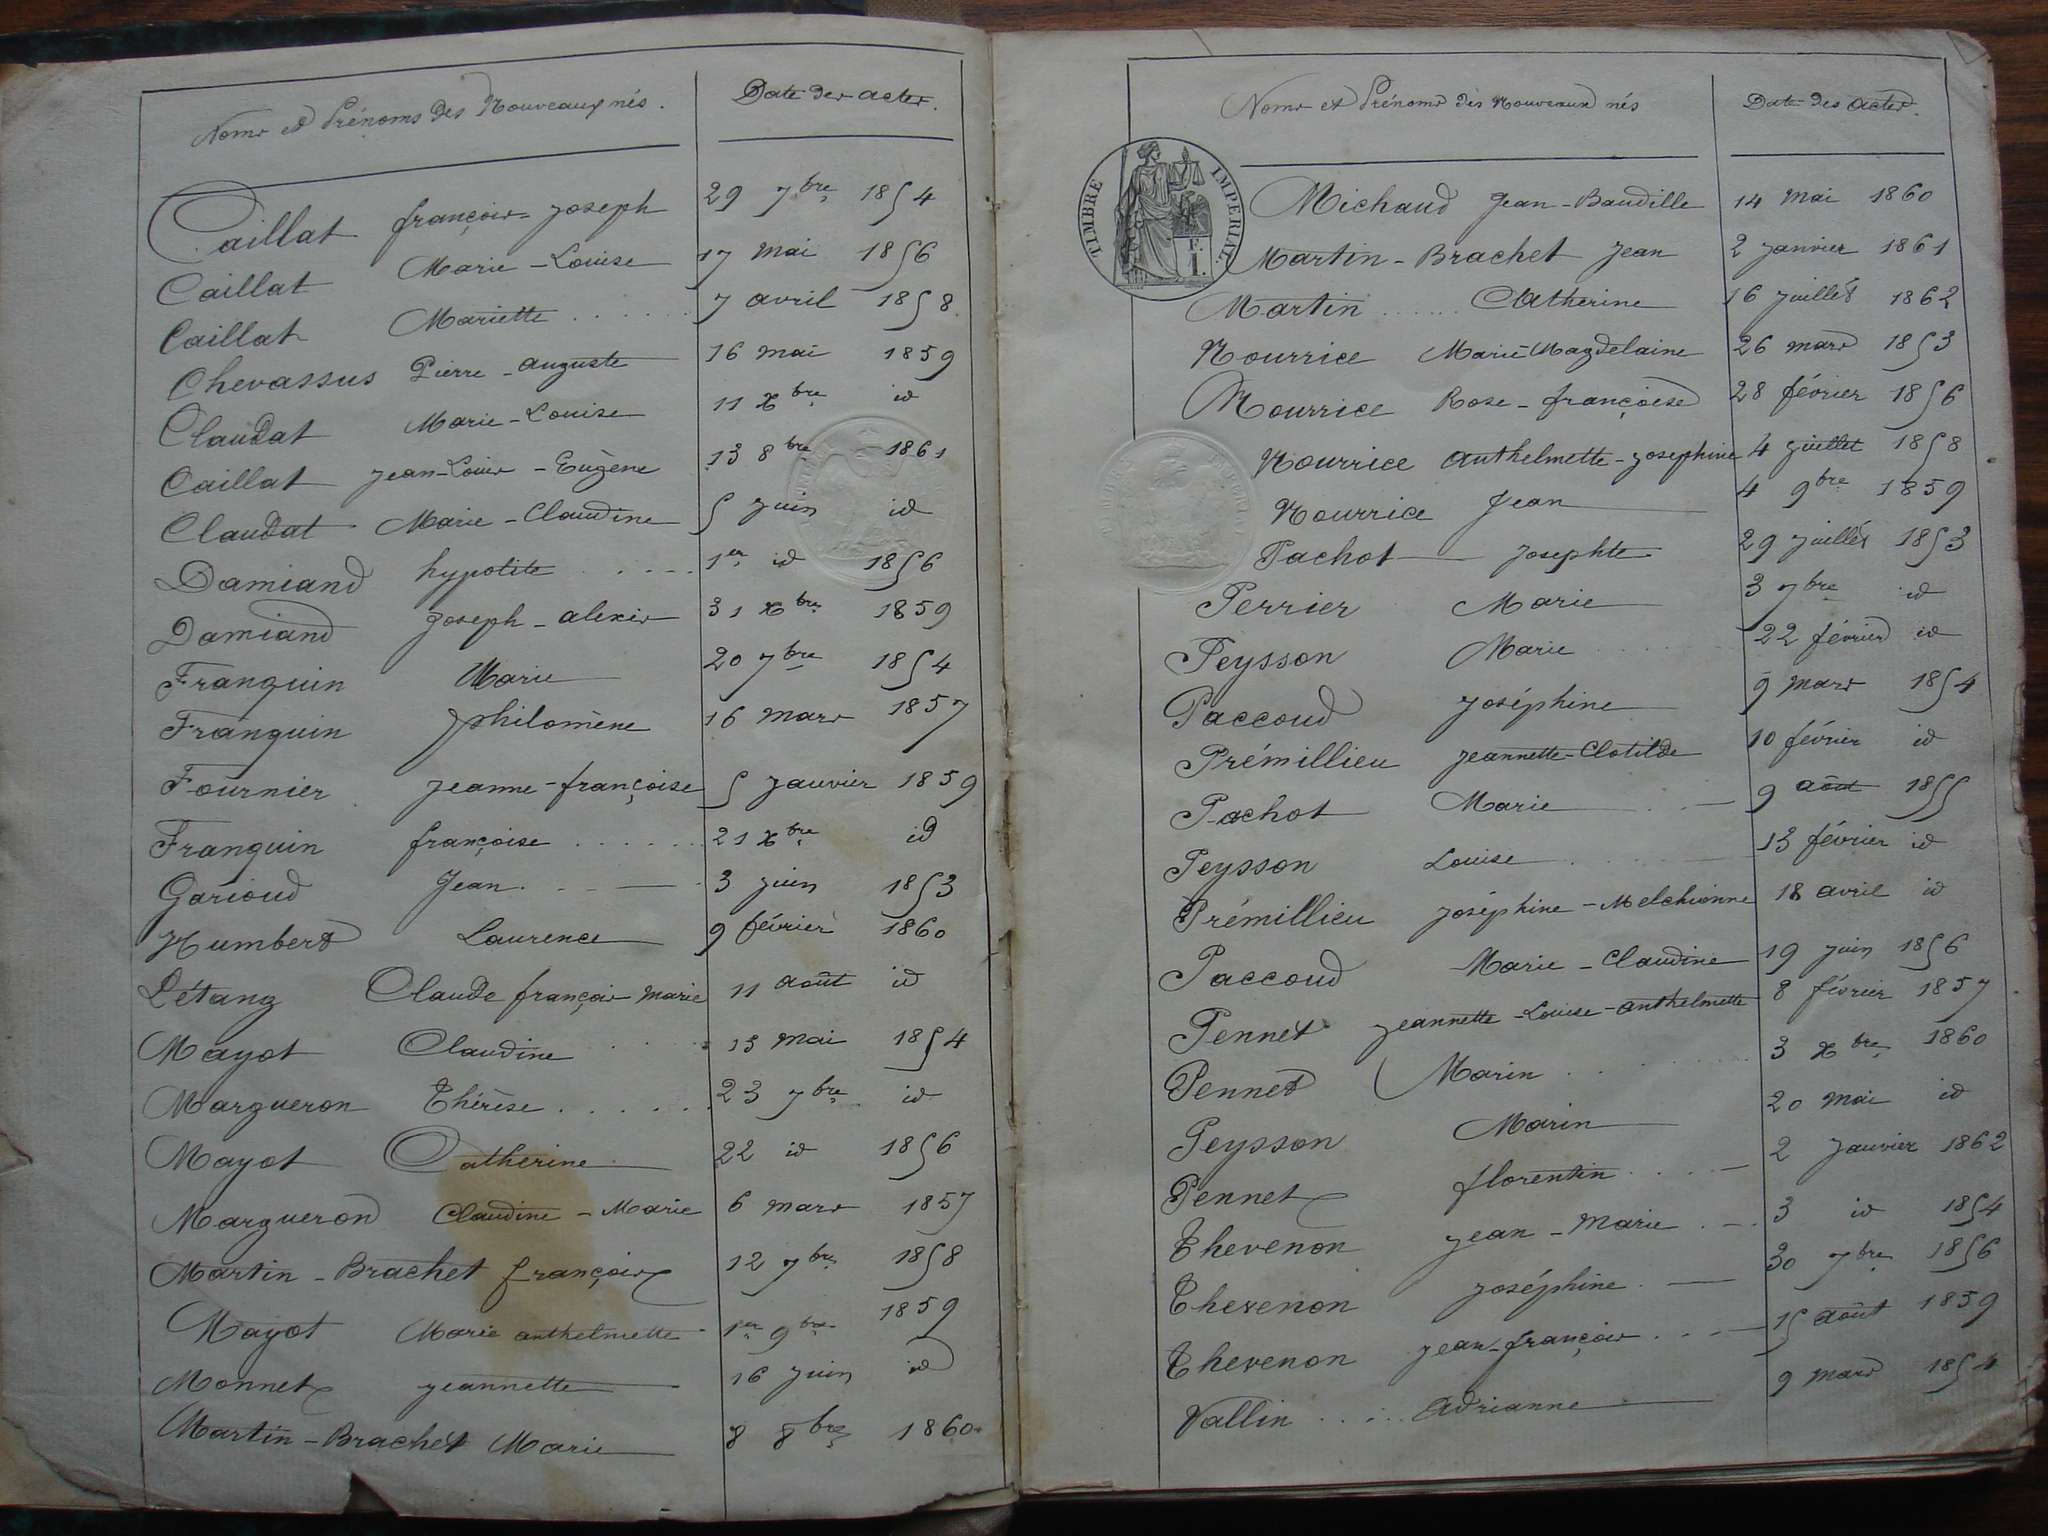 Noms et Prénoms des Nouveaux nés. Date des actes.
Caillat françois-Joseph 29 7bre 1854
Caillat Marie-Louise 17 Mai 1856
Caillat Mariette 7 avril 1858
Chevassus Pierre-auguste 16 mai 1859
Claudat Marie-Louise 11 Xbre id
Caillat Jean-Louis-Eugène 13 8bre 1861
Claudat Marie-Claudine 5 Juin id
Damiand hypolite 1er id 1856
Damiand Joseph-alexis 31 Xbre 1859
Franquin Marie 20 7bre 1854
Franquin philomène 16 mars 1857
Fournier Jeanne-françoise 5 Janvier 1859
Franquin françoise 21 Xbre id
Garioud Jean 3 Juin 1853
Humbert Laurence 9 février 1860
Létang Claude françois marie 11 août id
Mayot Claudine 13 Mai 1854
Margueron Thérèse 23 7bre id
Mayot Catherine 22 id 1856
Margueron Claudine-Marie 6 mars 1857
Martin-Brachet françois 12 7bre 1858
Mayot Marie anthelmette 1er 9bre 1859
Monnet Jeannette 16 Juin id
Martin-Brachet Marie 8 8bre 1860
Noms et Prénoms des Nouveaux nés Date des actes.
TIMBRE IMPERIAL
Michaud Jean-Baudille 14 Mai 1860
Martin-Brachet Jean 2 Janvier 1861
Martin Catherine 16 Juillet 1862
Nourrice Marie Magdelaine 26 mars 1853
Nourrice Rose-françoise 28 février 1856
Nourrice anthelmette-Josephine 4 Juillet 1858
Nourrice Jean 4 9bre 1859
Pachot Josephte 29 Juillet 1853
Perrier Marie 3 7bre id
Peysson Marie 22 février id
Paccoud Joséphine 9 mars 1854
Prémillieu Jeannette-Clotilde 10 février id
Pachot Marie 9 août 1855
Peysson Louise 13 février id
Prémillieu Joséphine-Melchionne 18 avril id
Paccoud Marie-Claudine 19 Juin 1856
Pennet Jeannette-Louise-anthelmette 8 février 1857
Pennet Marin 3 Xbre 1860
Peysson Marin 20 Mai id
Pennet florentin 2 Janvier 1862
Thevenon Jean-Marie 3 id 1854
Thevenon Joséphine 30 7bre 1856
Thevenon Jean-françois 15 août 1859
Vallin Adrianne 9 mars 1854